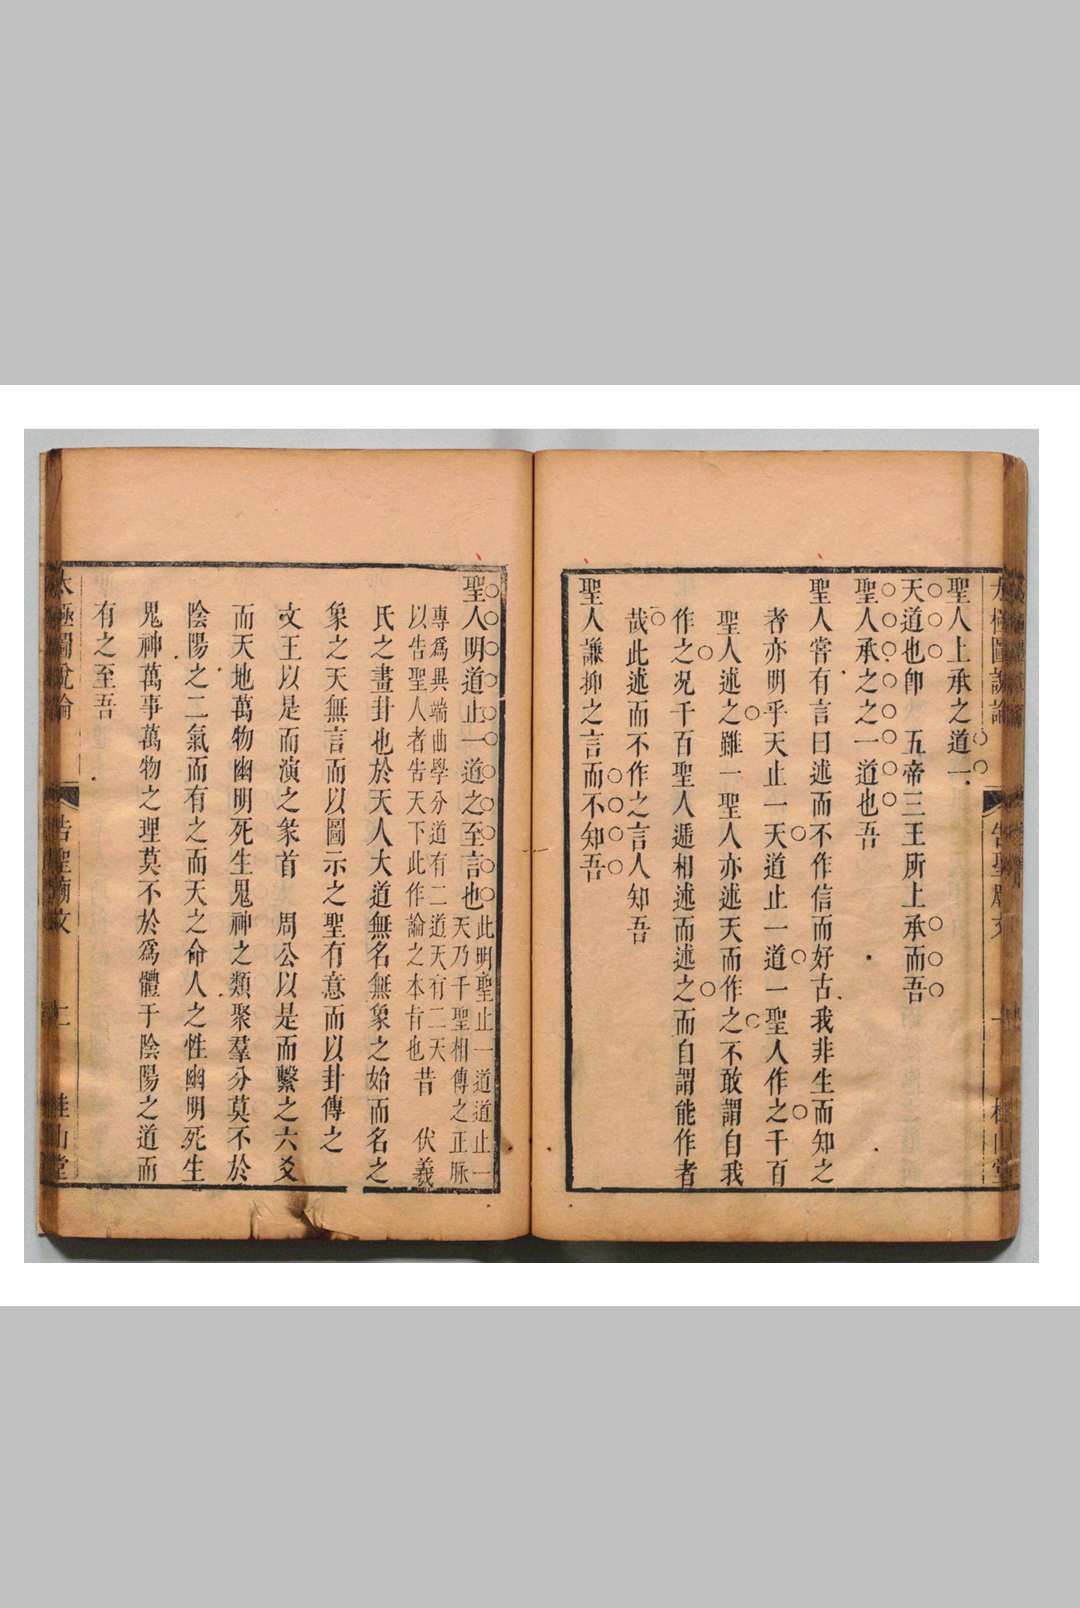 太極圖說論 告聖廟文 一 桂山堂
聖人上承之道一
天道也卽 五帝三王所上承而吾
聖人承之之一道也吾
聖人嘗有言曰述而不作信而好古我非生而知之
者亦明乎天止一天道止一道一聖人作之千百
聖人述之雖一聖人亦述天而作之不敢謂自我
作之况千百聖人遞相述而述之而自謂能作者
哉此述而不作之言人知吾
聖人謙抑之言而不知吾
聖人明道止一道之至言也此明聖止一道道止一
天乃千聖相傳之正脈
專爲異端曲學分道有二道天有二天
以告聖人者告天下此作論之本旨也 昔 伏羲
氏之畫卦也於天人大道無名無象之始而名之
象之天無言而以圖示之聖有意而以卦傳之
文王以是而演之彖首 周公以是而繫之六爻
而天地萬物幽明死生鬼神之類聚羣分莫不於
陰陽之二氣而有之而天之命人之性幽明死生
鬼神萬事萬物之理莫不於爲體于陰陽之道而
有之至吾
太極圖說論 告聖廟文 二 桂山堂